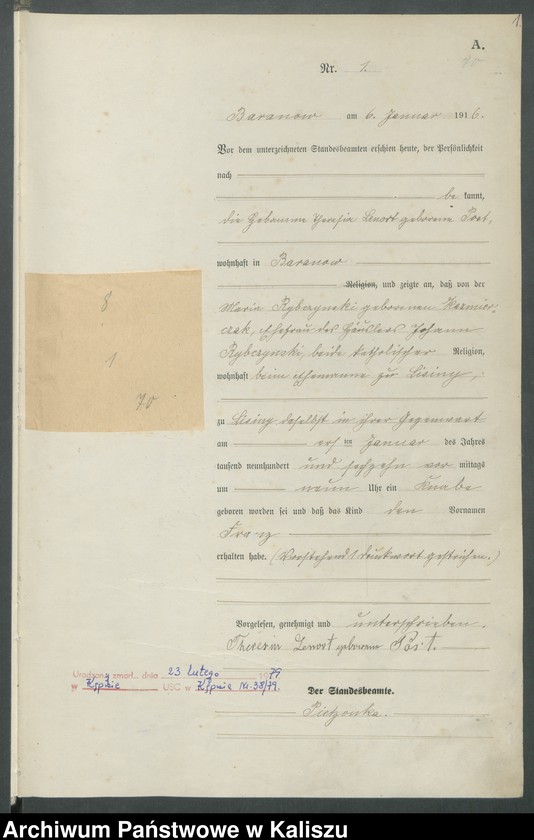 1
A.
70
Nr. 1.
Baranow am 6. Januar 1916.
Vor dem unterzeichneten Standesbeamten erschien heute, der Persönlichkeit
nach
be kannt,
die Hebamme Theresia Lenort geborene Post,
wohnhaft in Baranow
Religion, und zeigte an, daß von der
Maria Rybczynski geborenen Kazmier-
czak, Ehefrau des Häuslers Johann
Rybczynski, beide katholischer Religion,
wohnhaft beim Ehemanne zu Lising,
zu Lising daselbst in ihrer Gegenwart
am ersten Januar des Jahres
tausend neunhundert und sechzehn vor mittags
um neun Uhr ein Knabe
geboren worden sei und daß das Kind den Vornamen
Franz
erhalten habe. (Vorstehend 1 Druckwort gestrichen.)
Vorgelesen, genehmigt und unterschrieben.
Theresia Lenort geborene Post.
Der Standesbeamte.
Pietzonka.
8
1
70
Urodzony zmarł dnia 23 lutego 1979
w Kępnie USC w Kępnie Nr. 38/79.
Archiwum Państwowe w Kaliszu